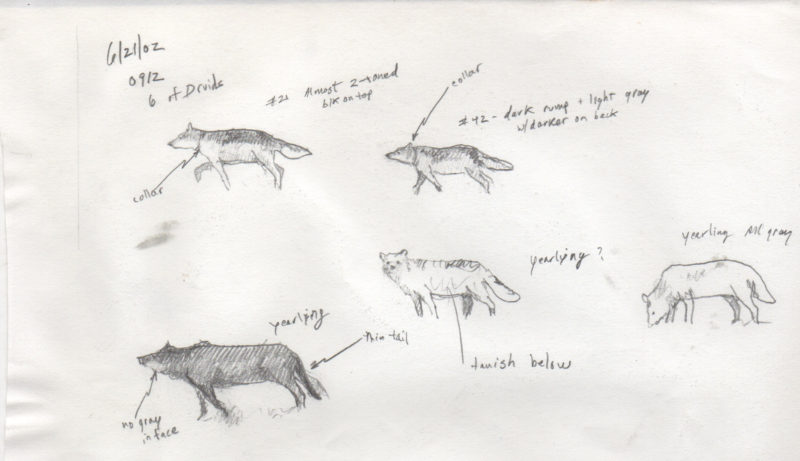 6/21/02
0912
6 of Druids
#21 Almost 2-toned
blk on top
collar
#42 - dark rump + light gray
w/darker on back
collar
yearlying ?
yearling All gray
yearlying
thin tail
tanish below
no gray
in face